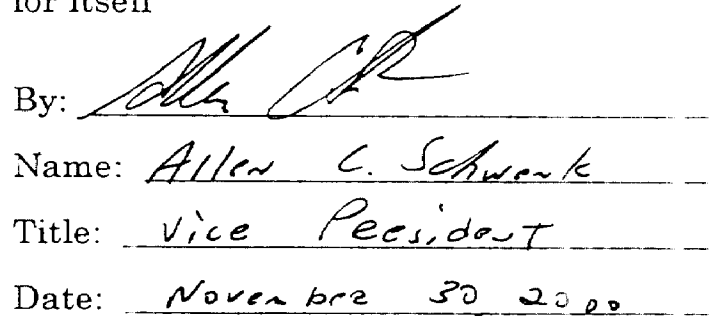 for itself
By: Allen C
Name: Allen C. Schwenk
Title: Vice President
Date: November 30 2000